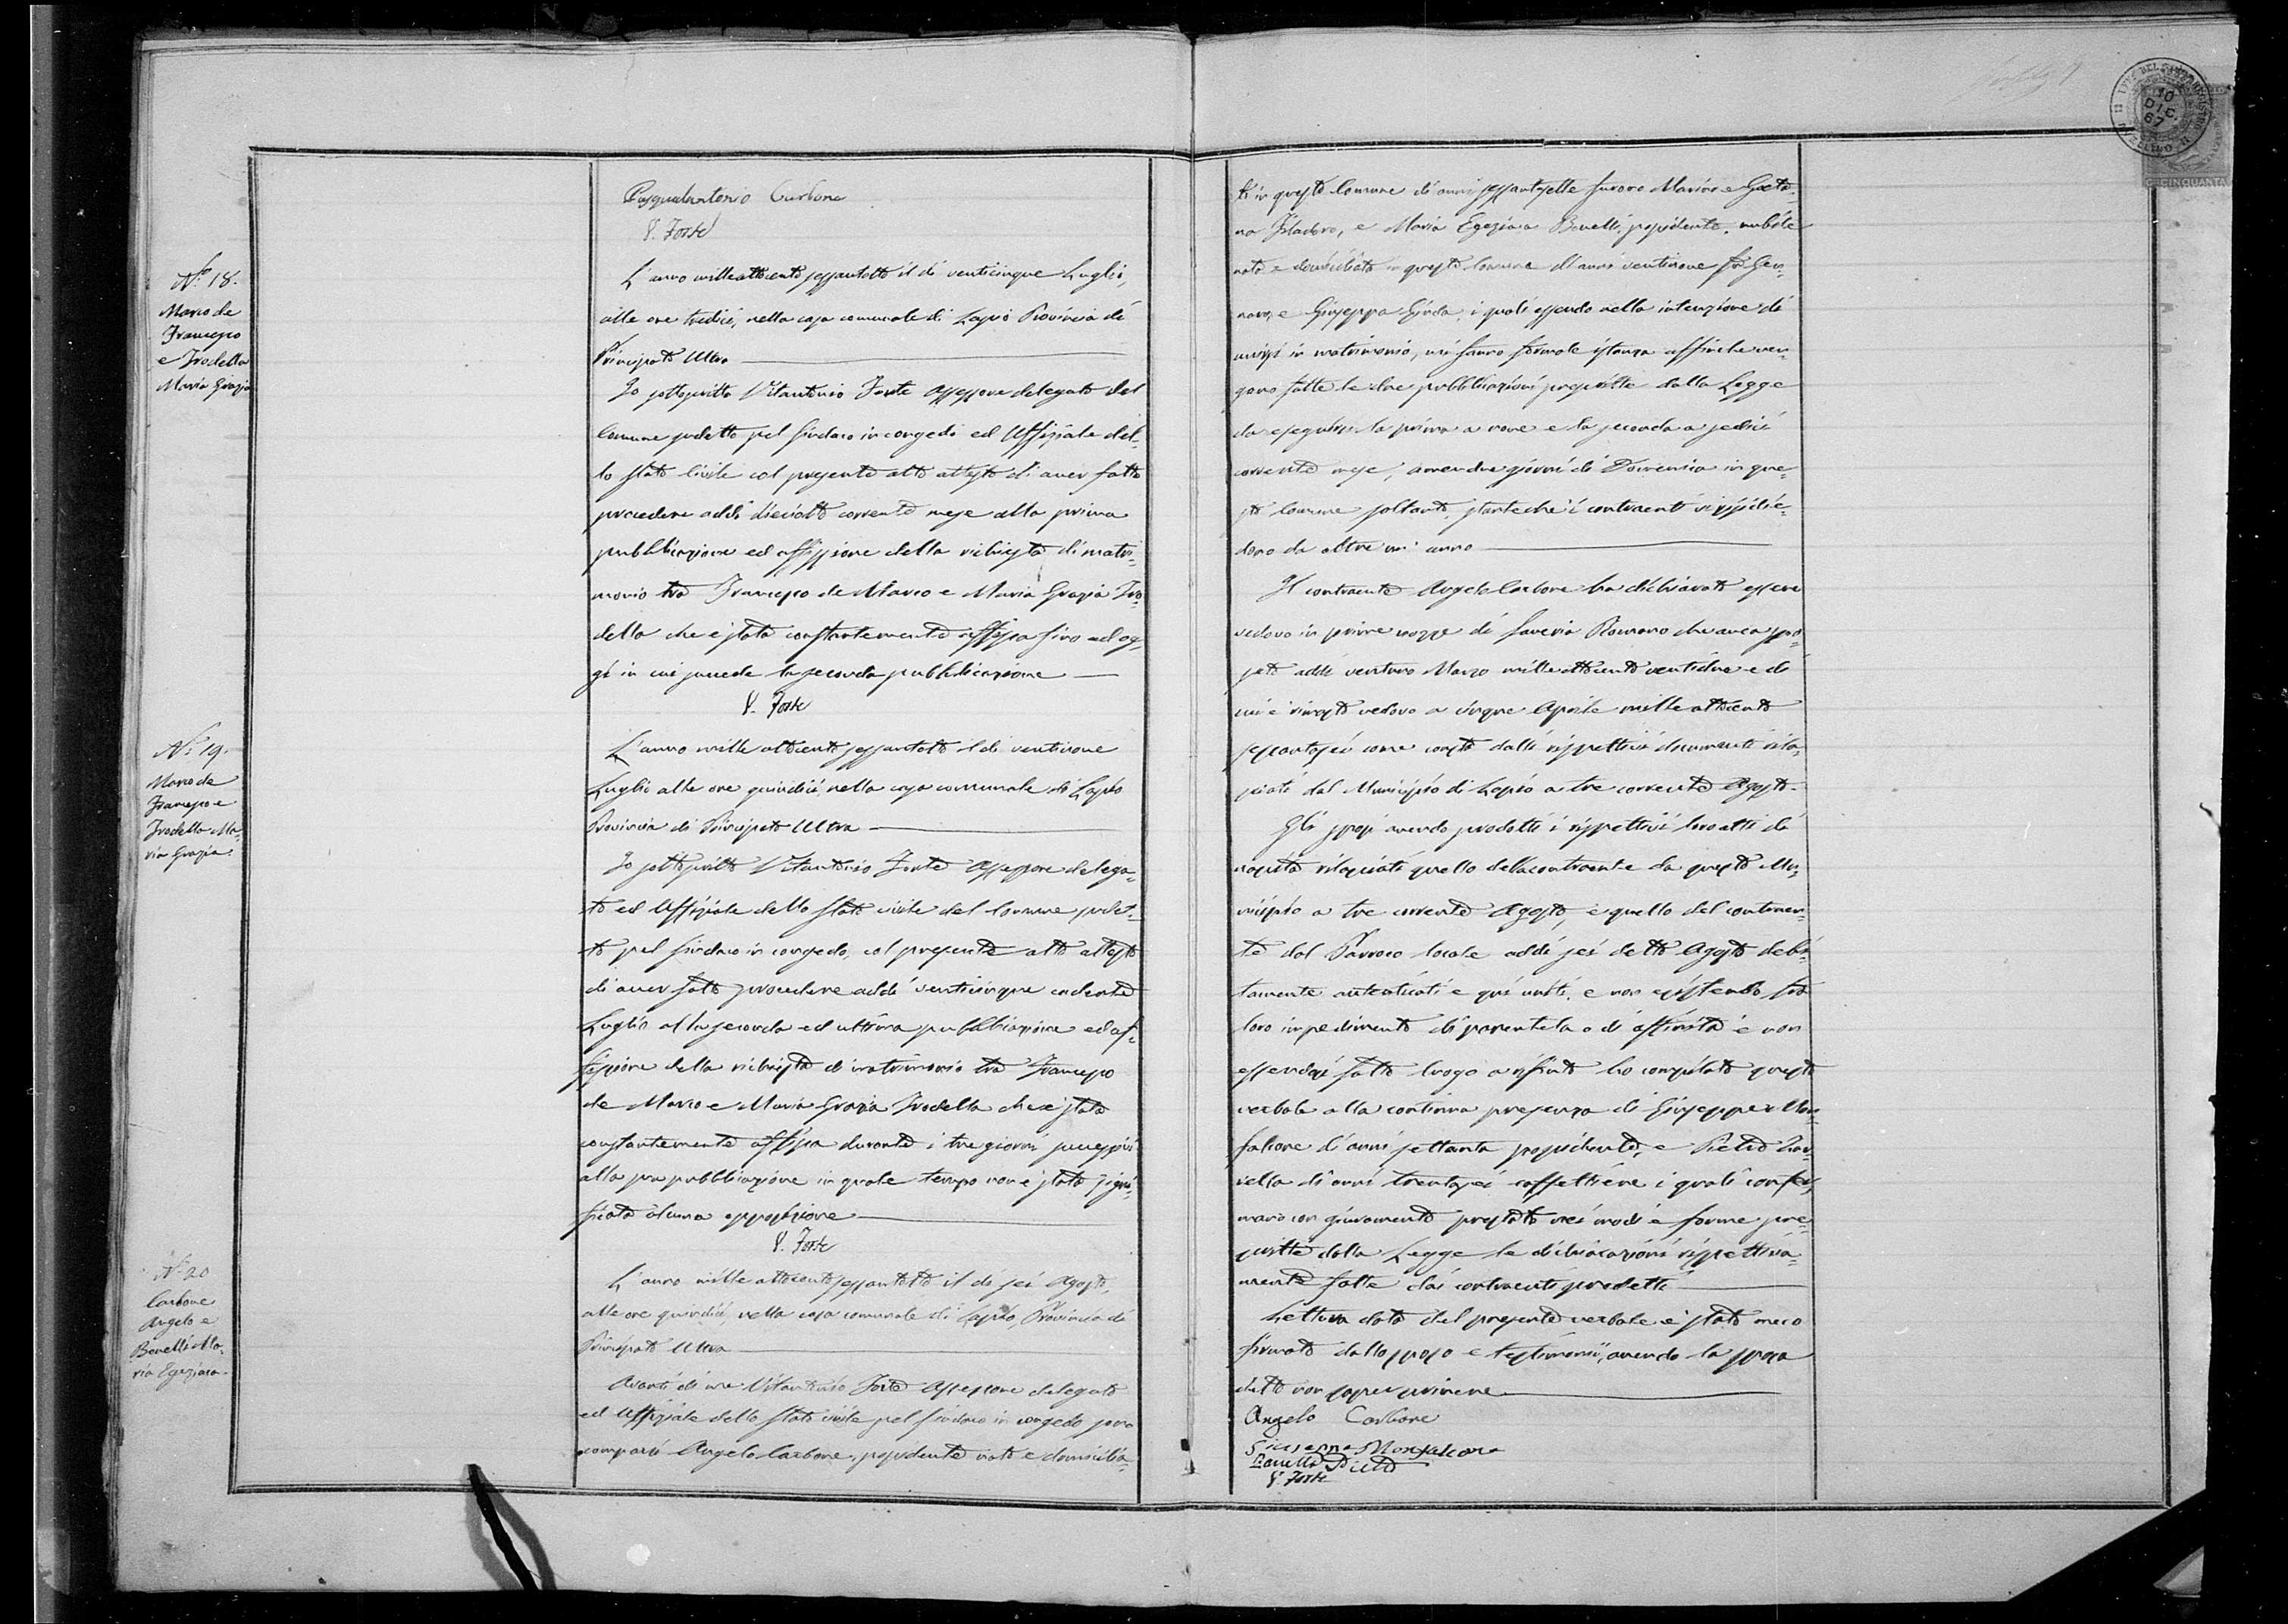 Pasqualantonio Carbone
V. Forte
N.º 18.
Marco de
Francesco
e Trodella
Maria Grazia
L'anno milleottocento sessantotto il dì venticinque Luglio,
alle ore tredici, nella casa comunale di Lapio Provincia di
Principato Ultra
Io sottoscritto Vitantonio Forte Assessore delegato del
Comune sudetto pel Sindaco in congedo ed Uffiziale del-
lo Stato Civile col presente atto attesto di aver fatto
procedere addì dieciotto corrente mese alla prima
pubblicazione ed affissione della richiesta di matri-
monio tra Francesco de Marco e Maria Grazia Tro-
della che è stata constantemente affissa fino ad og-
gi in cui succede la seconda pubblicazione
V. Forte
N.º 19.
Marco de
Francesco e
Trodella Ma-
ria Grazia.
L'anno mille ottocento sessantotto il dì ventinove
Luglio alle ore quindici, nella casa comunale di Lapio
Provincia di Principato Ultra
Io sottoscritto Vitantonio Forte Assessore delega-
to ed Uffiziale dello Stato civile del Comune sudet-
to pel Sindaco in congedo, col presente atto attesto
di aver fatto procedere addì venticinque cadente
Luglio alla seconda ed ultima pubblicazione ed af-
fissione della richiesta di matrimonio tra Francesco
de Marco e Maria Grazia Trodella che è stata
constantemente affissa durante i tre giorni successivi
alla sua pubblicazione in quale tempo non è stata signi-
ficata alcuna opposizione
V. Forte
N.º 20
Carbone
Angelo e
Bonelli Ma-
ria Egiziaca.
L'anno mille ottocento sessantotto il dì sei Agosto,
alle ore quindici, nella casa comunale di Lapio, Provincia di
Principato Ultra
Avanti di me Vitantonio Forte Assessore delegato
ed Uffiziale dello Stato civile pel Sindaco in congedo sono
comparsi Angelo Carbone, possidente nato e domicilia-
to in questo Comune di anni sessantasette furono Marino e Gaeta-
na, e Maria Egiziaca Bonelli, possidente, nubile
nata e domiciliata in questo Comune di anni ventinove fu Gen-
naro, e Giuseppa, i quali essendo nella intenzione di
unirsi in matrimonio, mi fanno formale istanza affinchè ven-
gano fatte le due pubblicazioni prescritte dalla Legge
da eseguirsi la prima a nove e la seconda a sedici
corrente mese, amendue giorni di Domenica in que-
sto Comune soltanto, stantechè i contraenti vi risie-
dono da oltre un'anno
Il contraente Angelo Carbone ha dichiarato essere
vedovo in prime nozze di Saveria Romano che avea spo-
sato addì ventuno Marzo mille ottocento ventidue e di
cui è rimasto vedovo a cinque Aprile mille ottocento
sessantasei come consta dalli rispettivi documenti rila-
sciati dal Municipio di Lapio a tre corrente Agosto.
Gli sposi avendo prodotti i rispettivi loro atti di
nascita rilasciati quello della contraente da questo Mu-
nicipio a tre corrente Agosto, e quello del contraen-
te dal Parroco locale addì sei detto Agosto debi-
tamente autenticati e quì uniti, e non esistendo fra
loro impedimento di parentela o di affinità e non
essendosi fatto luogo a rifiuto ho compilato questo
verbale alla continua presenza di Giuseppe Mon-
falcone di anni settanta possidente, e Pietro
di anni trentasei caffettiere i quali confer-
mano con giuramento prestato nei modi e forme pre-
scritte dalla Legge le dichiarazioni rispettiva-
mente fatte dai contraenti predetti
Lettura data del presente verbale è stato meco
firmato dallo sposo e testimonii, avendo la sposa
detto non saper scrivere
Angelo Carbone
Giuseppe Monfalcone
Pietro
V. Forte
10
DIC
67
CINQUANTA